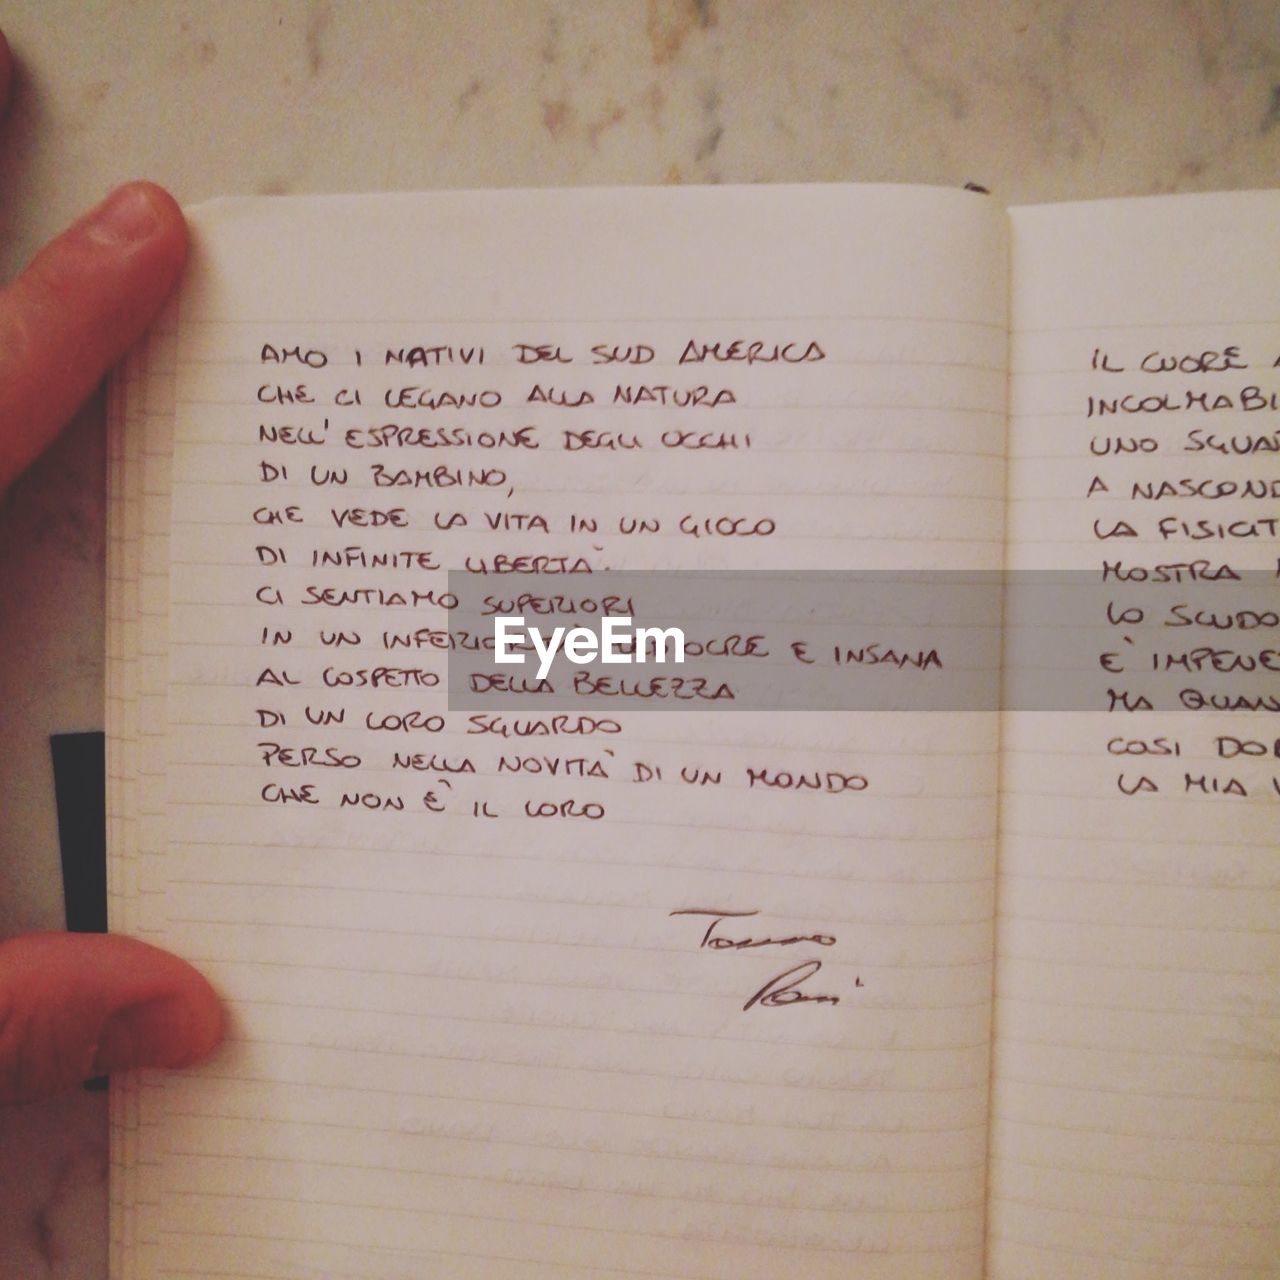 AMO I NATIVI DEL SUD AMERICA
CHE CI LEGANO ALLA NATURA
NELL' ESPRESSIONE DEGLI OCCHI
DI UN BAMBINO,
CHE VEDE LA VITA IN UN GIOCO
DI INFINITE LIBERTÀ.
CI SENTIAMO SUPERIORI
IN UN INFERIORITÀ MEDIOCRE E INSANA
AL COSPETTO DELLA BELLEZZA
DI UN LORO SGUARDO
PERSO NELLA NOVITÀ DI UN MONDO
CHE NON È IL LORO
IL CUORE
INCOLMABI
UNO SGUAR
A NASCOND
LA FISICIT
MOSTRA
LO SCUDO
È IMPENE
MA QUAN
COSI DO
LA MIA
EyeEm